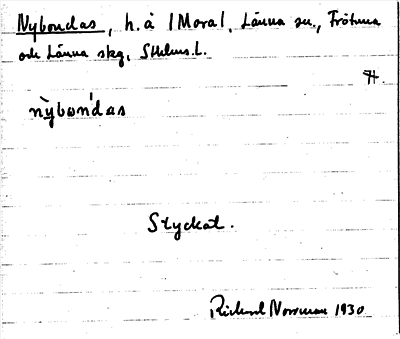 Nybondas, h. å /Mora/, Länna sn., Frötuna
och Länna skg, Sthlms l.
nỳbon'das
Styckat.
Rickard Norrman 1930